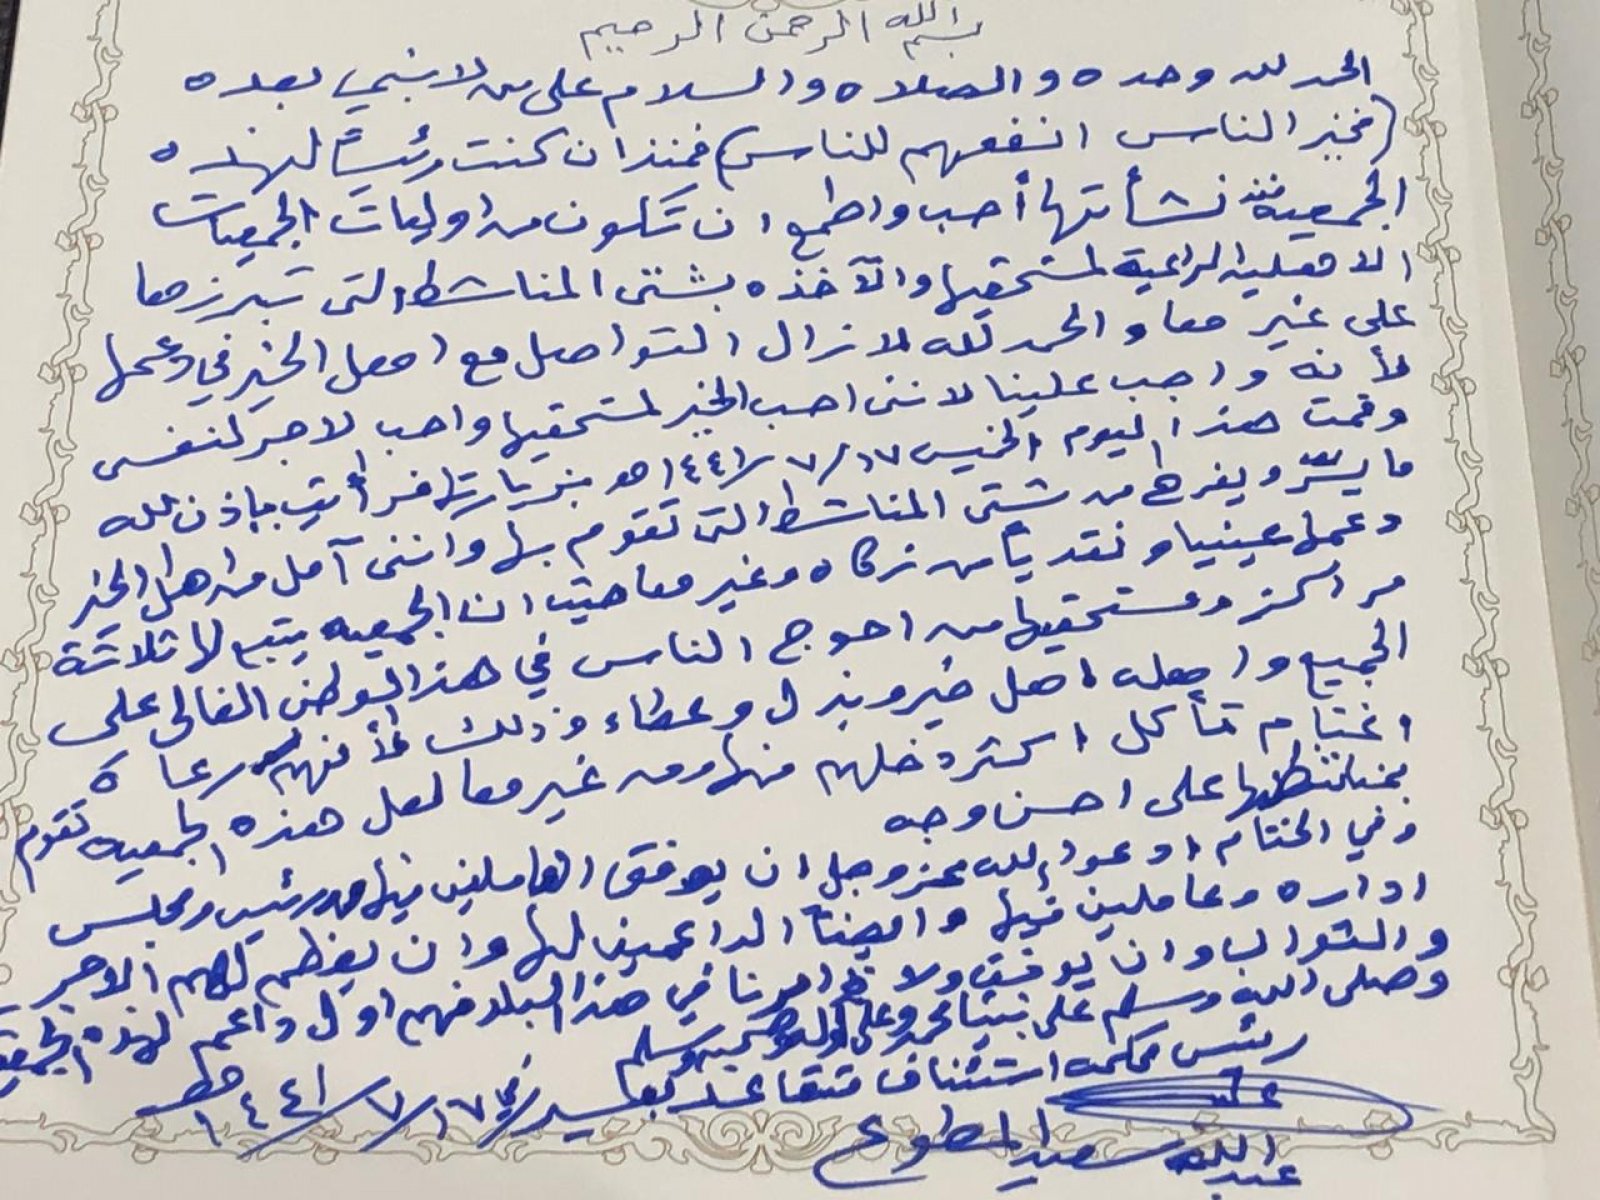 بسم الله الرحمن الرحيم
الحمد لله وحده والصلاه والسلام على من لا نبي بعده
(فخير الناس انفعهم للناس) فمنذ ان كنت رئيساً لهذه
الجمعيه منذ نشأتها أحب واطمع ان تكون من اوليات الجمعيات
الاهليه الراعية لمستحقيها والآخذه بشتى المناشط التى تبرزها
على غيرها والحمد لله لا نزال التواصل مع اهل الخير في دعمها
لأنه واجب علينا لاننى احب الخير لمستحقيها واحب لاجر لنفسى
وقمت هذا اليوم الخميس ١٧/٧/١٤٤١هـ بزيارتها فرأيت بإذن الله
ما يسرّ ويفرح من شتى المناشط التى تقوم بها واننى آمل من اهل الخير
دعمها عينيا ونقدياً من زكاه وغيرها حيث ان الجمعيه يتبع لها ثلاثة
مراكز ومستحقيها من احوج الناس في هذا الوطن الغالى على
الجميع واهله اهل خير وبذل وعطاء وذلك لأنهم رعاة
اغنام تأكل اكثر دخلهم منها ومن غيرها لعل هذه الجمعيه تقوم
بمناشطها على احسن وجه
وفي الختام ادعو الله عز وجل ان يوفق العاملين فيها من رئيس ومجلس
اداره وعاملين فيها وايضاً الداعمين لها وان يعظم لهم الاجر
والثواب وان يوفق ولاة امرنا في هذا البلد فهم اول داعم لهذه الجمعية
وصلى الله وسلم على نبينا محمد وعلى اله وصحبه وسلم
رئيس محكمه استئناف متقاعد بعسير في ١٧/٧/١٤٤١هـ
عبدالله سعيد المطوع